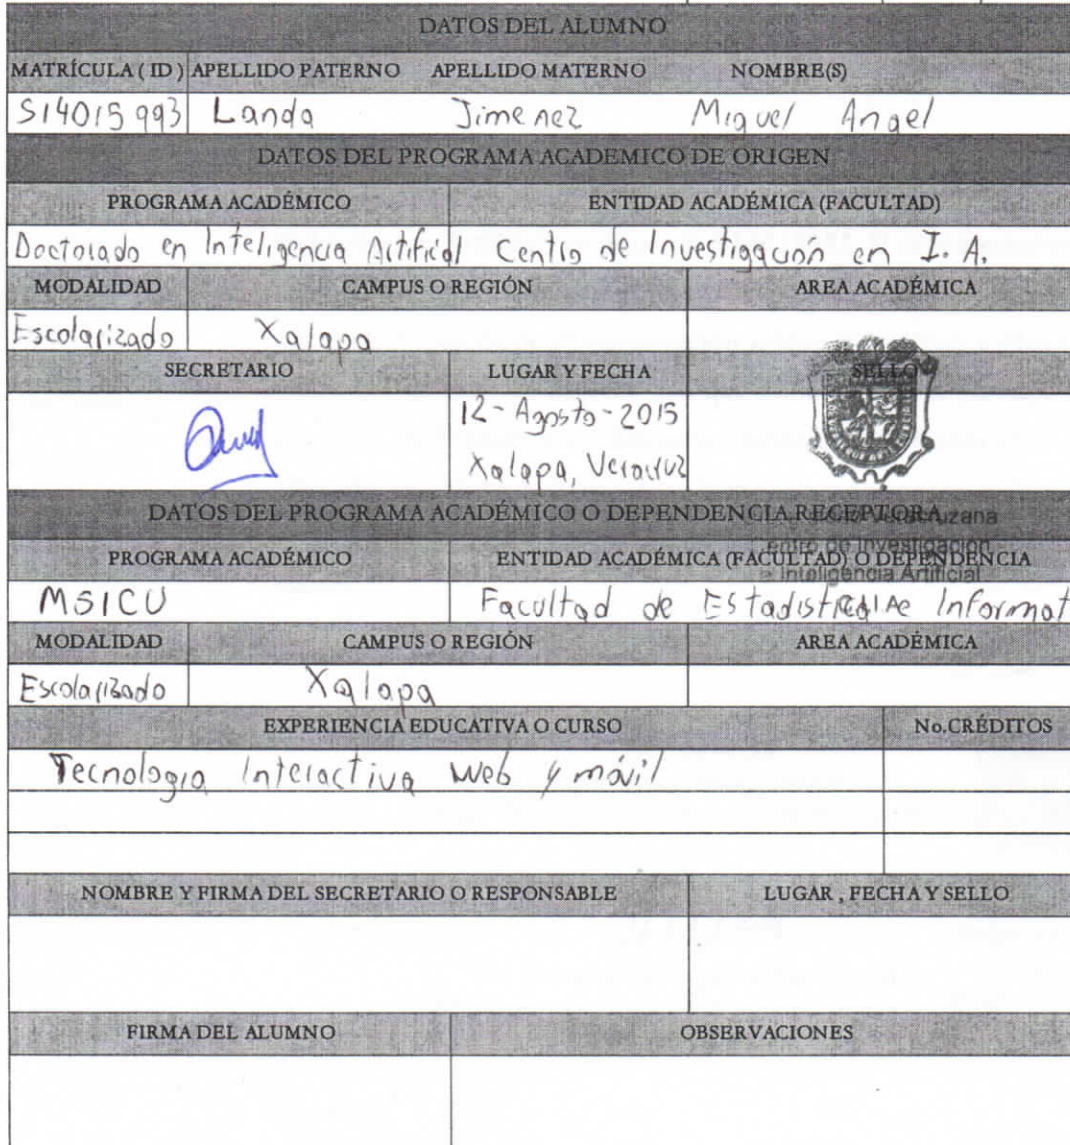 DATOS DEL ALUMNO
MATRÍCULA ( ID ) APELLIDO PATERNO APELLIDO MATERNO NOMBRE(S)
S14015993 Landa Jimenez Miguel Angel
DATOS DEL PROGRAMA ACADEMICO DE ORIGEN
PROGRAMA ACADÉMICO ENTIDAD ACADÉMICA (FACULTAD)
Doctorado en Inteligencia Artificial Centro de Investigación en I. A.
MODALIDAD CAMPUS O REGIÓN AREA ACADÉMICA
Escolarizado Xalapa
SECRETARIO LUGAR Y FECHA SELLO
12-Agosto-2015
Xalapa, Veracruz
DATOS DEL PROGRAMA ACADÉMICO O DEPENDENCIA RECEPTORA
PROGRAMA ACADÉMICO ENTIDAD ACADÉMICA (FACULTAD) O DEPENDENCIA
Centro de Investigación
Inteligencia Artificial
MSICU Facultad de Estadística e Informat
MODALIDAD CAMPUS O REGIÓN AREA ACADÉMICA
Escolarizado Xalapa
EXPERIENCIA EDUCATIVA O CURSO No.CRÉDITOS
Tecnologia Interactiva Web y móvil
NOMBRE Y FIRMA DEL SECRETARIO O RESPONSABLE LUGAR , FECHA Y SELLO
FIRMA DEL ALUMNO OBSERVACIONES